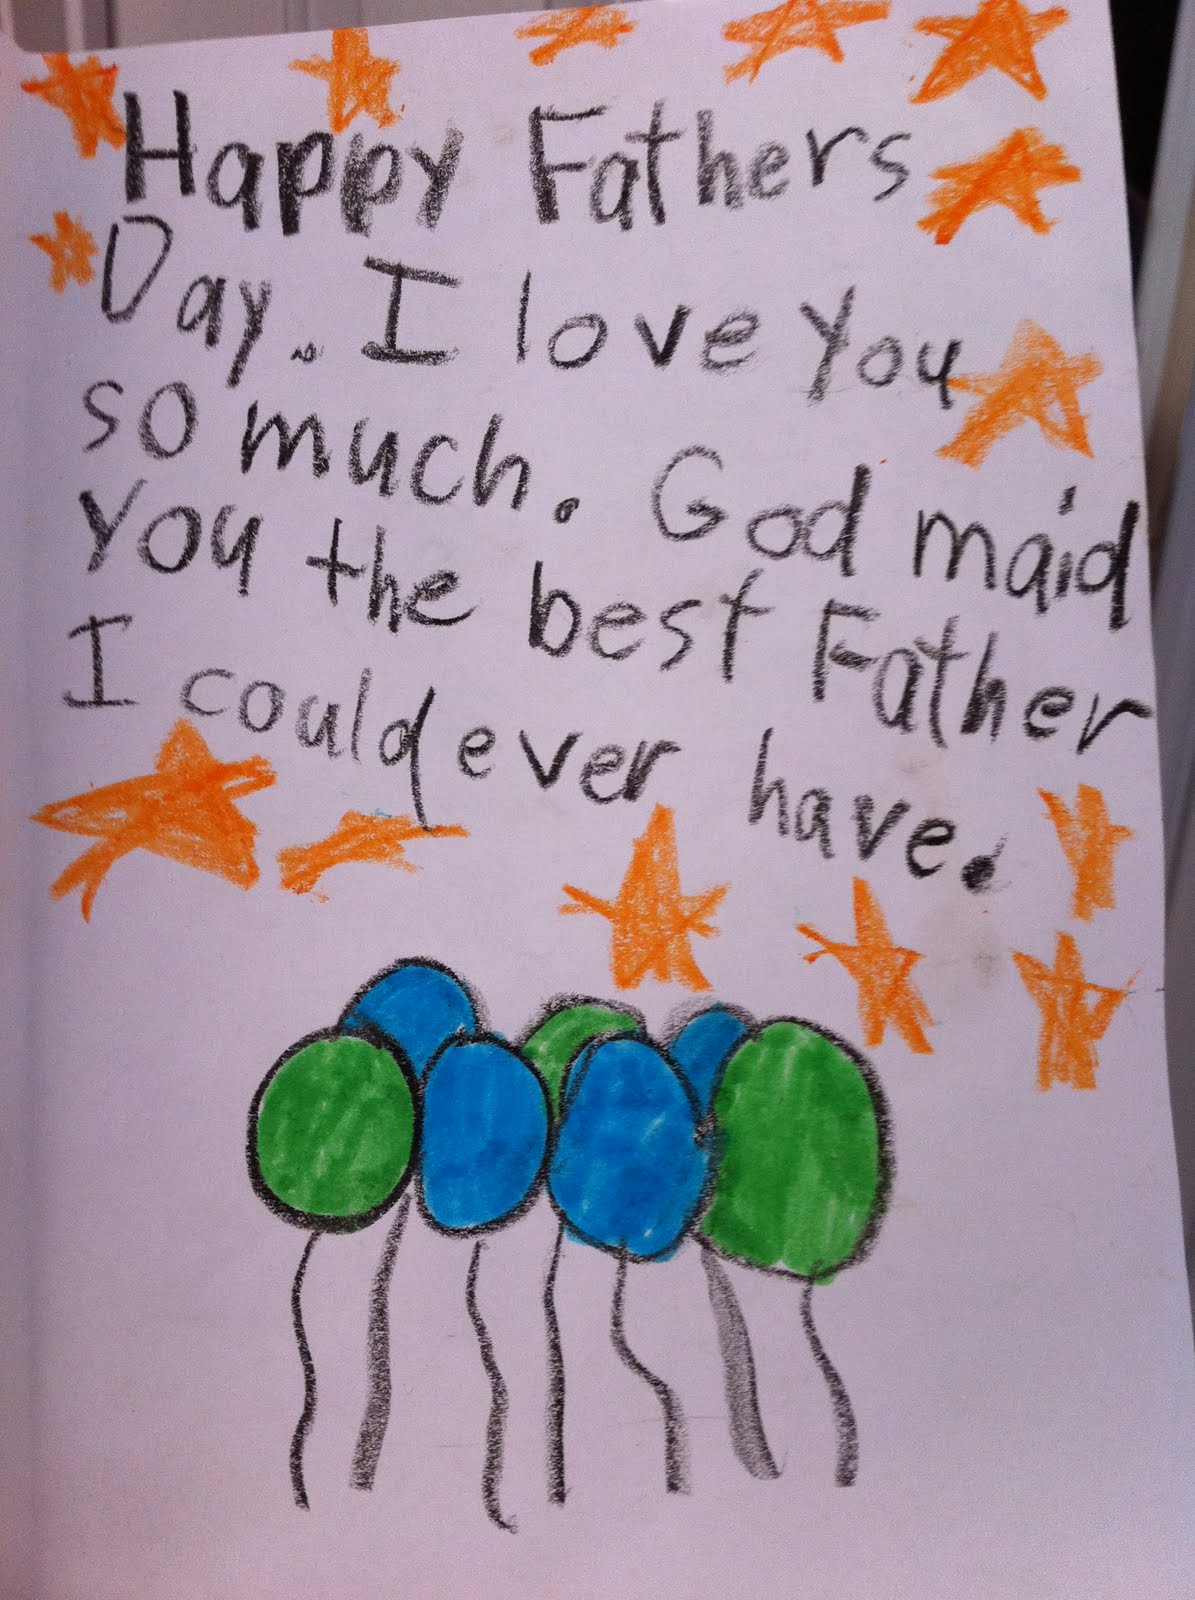 Happy Fathers
Day. I love you
so much. God maid
you the best Father
I could ever have.